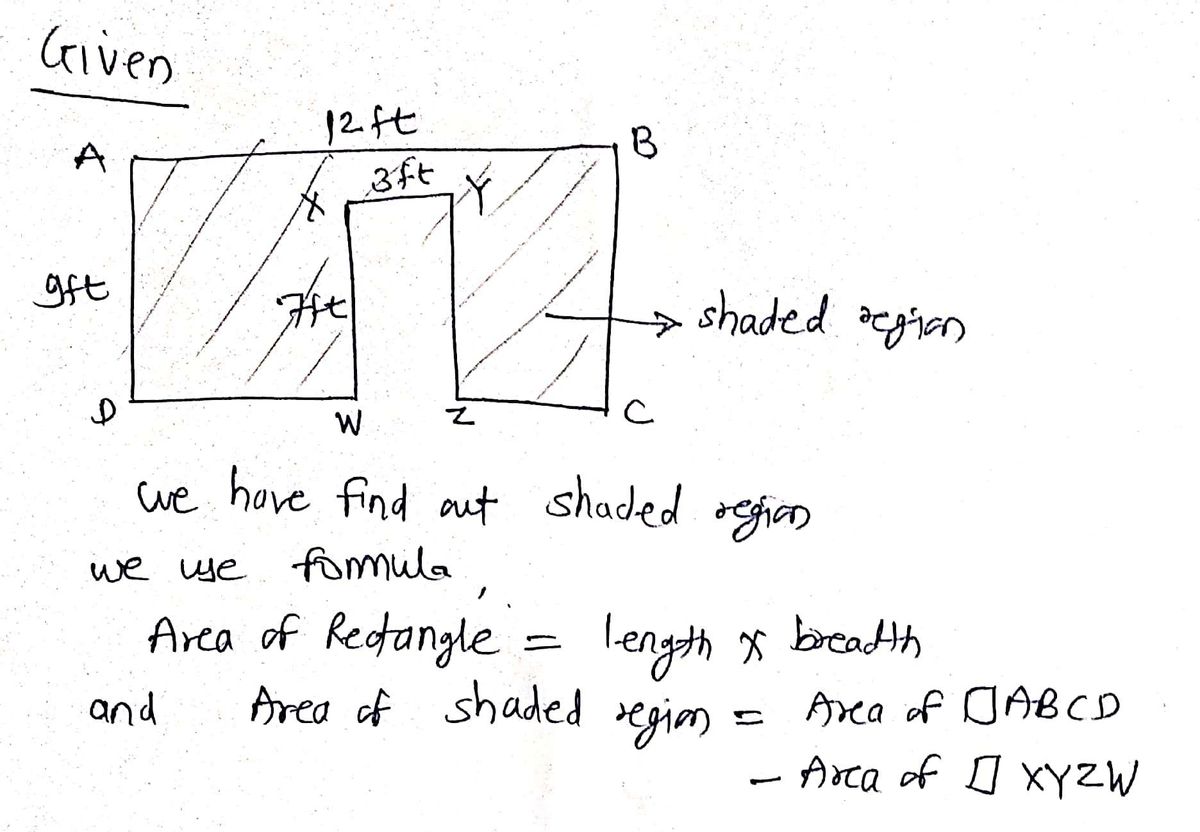 Given
12 ft
A
B
3ft
X
Y
9ft
7ft
shaded region
D
W
Z
C
we have find out shaded region
we use formula,
Area of Rectangle = length x breadth
and Area of shaded region = Area of ▯ABCD
- Area of ▯ XYZW